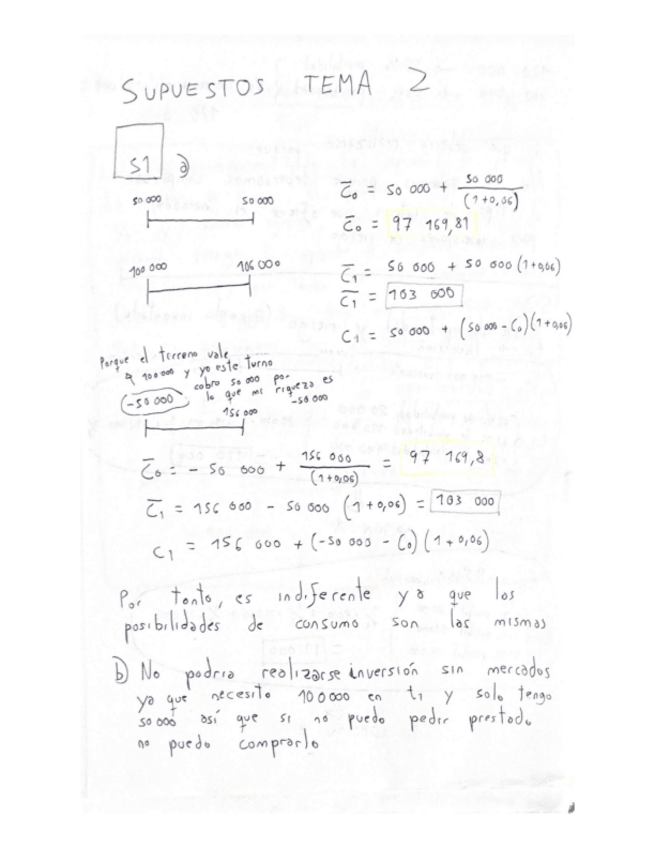 SUPUESTOS TEMA 2
S1 a)
50 000 50 000
C̄₀ = 50 000 + 50 000 / (1+0,06)
C̄₀ = 97 169,81
100 000 106 000
C̄₁ = 50 000 + 50 000 (1+0,06)
C̄₁ = 103 000
C₁ = 50 000 + (50 000 - C₀)(1+0,06)
Porque el terreno vale
100 000 y yo este turno
cobro 50 000 por
lo que mi riqueza es
-50 000
-50 000
156 000
C̄₀ = - 50 000 + 156 000 / (1+0,06) = 97 169,8
C̄₁ = 156 000 - 50 000 (1+0,06) = 103 000
C₁ = 156 000 + (-50 000 - C₀)(1+0,06)
Por tanto, es indiferente ya que las
posibilidades de consumo son las mismas
b) No podría realizarse inversión sin mercados
ya que necesito 100000 en t₁ y solo tengo
50 000 así que si no puedo pedir prestado
no puedo comprarlo